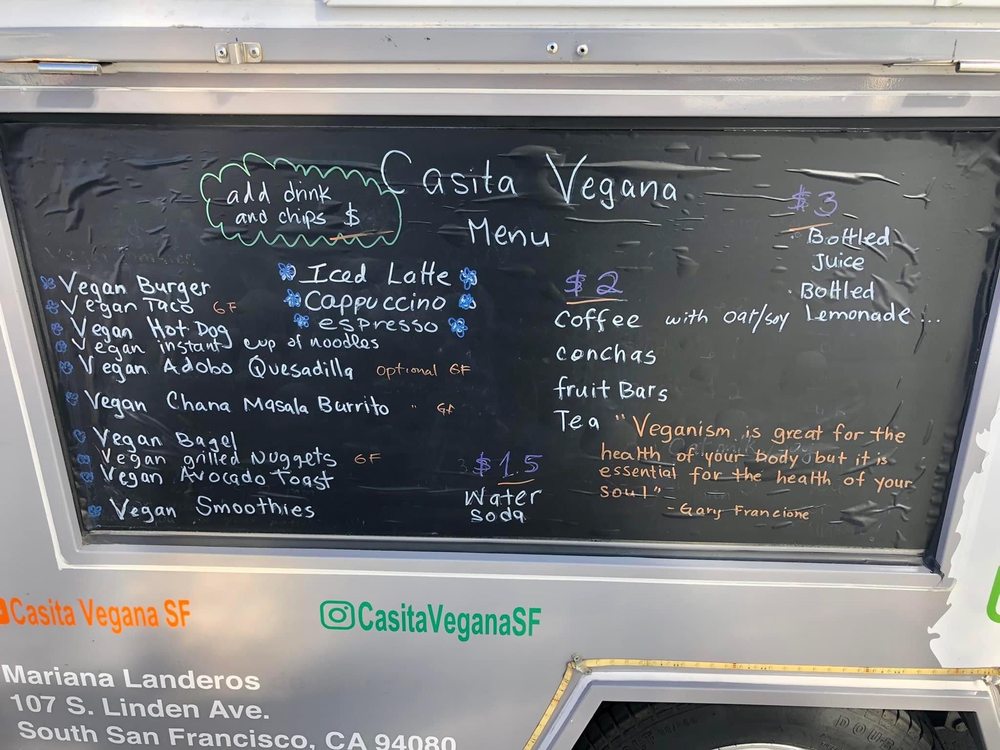 add drink
and chips $
Casita Vegana
Menu
Vegan Burger
Vegan Taco GF
Vegan Hot Dog
Vegan instant cup of noodles
Vegan Adobo Quesadilla optional GF
Vegan Chana Masala Burrito " GF
Vegan Bagel
Vegan grilled Nuggets GF
Vegan Avocado Toast
Vegan Smoothies
Iced Latte
Cappuccino
espresso
$1.5
Water
Soda
$2
Coffee with oat/soy
conchas
fruit Bars
Tea
$3
Bottled
Juice
Bottled
Lemonade...
"Veganism is great for the
health of your body but it is
essential for the health of your
soul"
- Gary Francione
Casita Vegana SF
CasitaVeganaSF
Mariana Landeros
107 S. Linden Ave.
South San Francisco, CA 94080